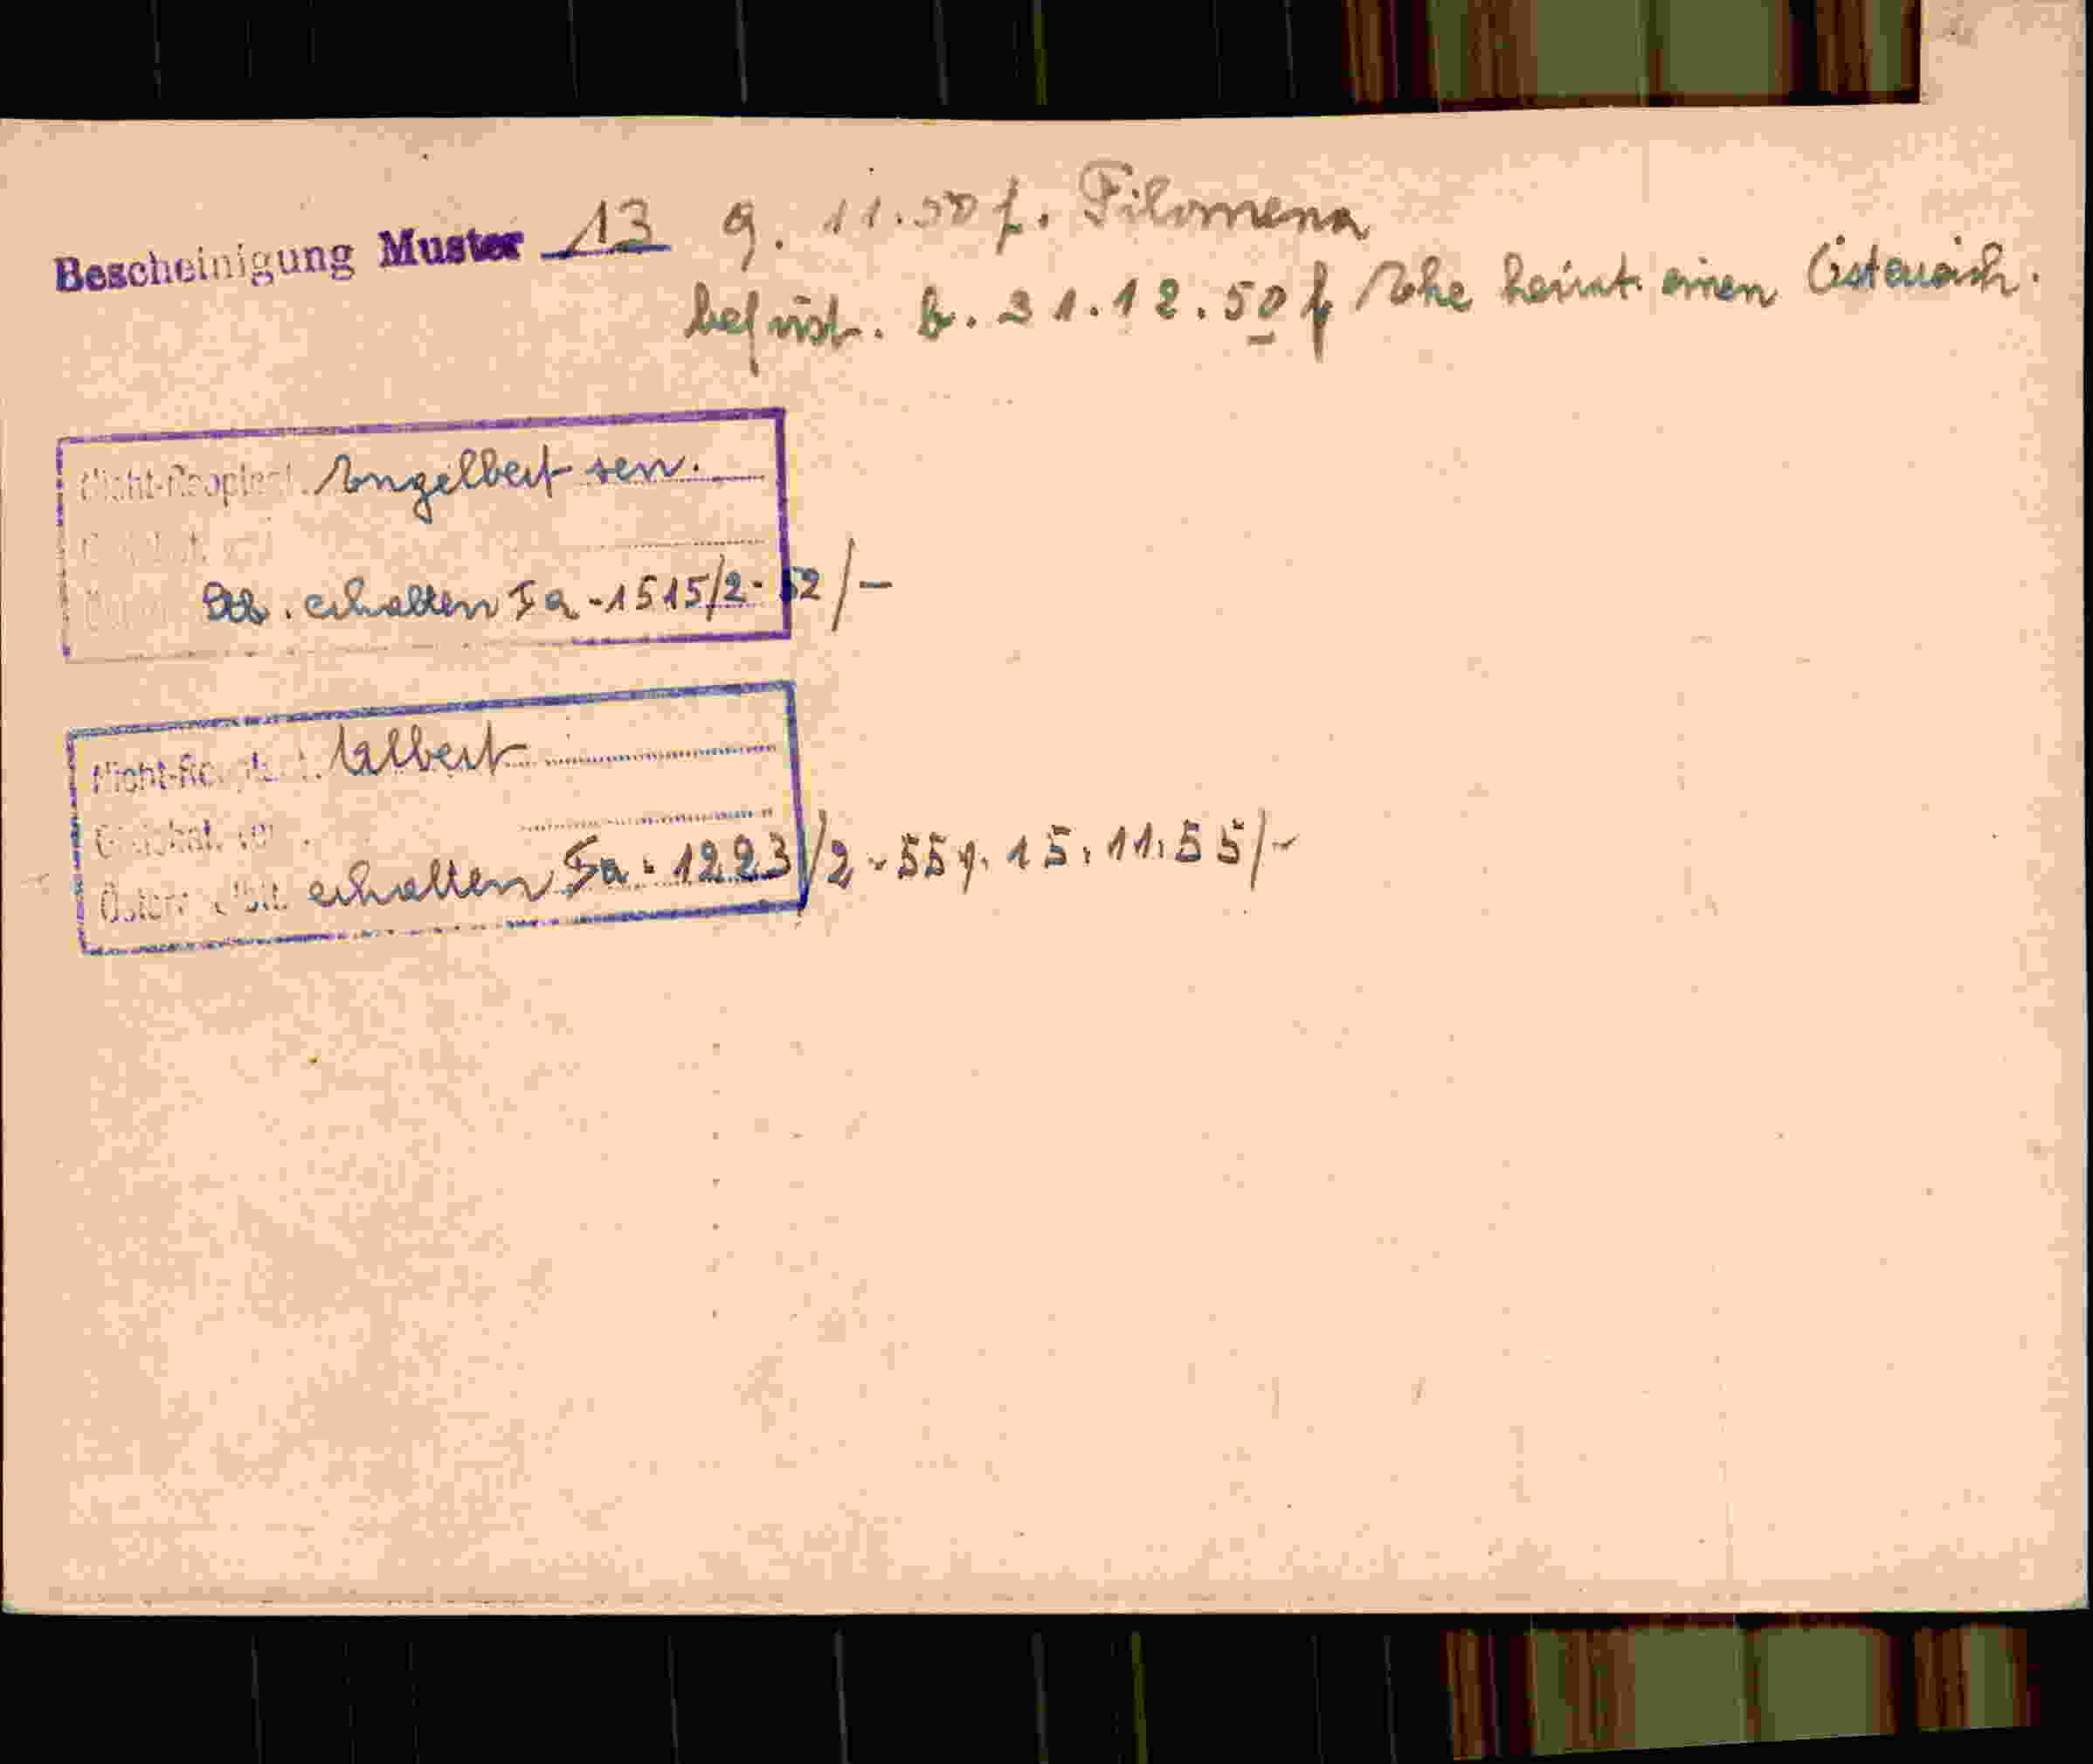 Bescheinigung Muster 13 g. 11.50 f. Filomena
befrist. b. 31.12.50 f Ehe heirat. einen Österreich.
Nicht-Reoptant. Engelbert sen.
Stb. erhalten Ia-1515/2-52/-
Nicht-Reoptant. Albert
Österr. Stb. erhalten Ia-1223/2-55 v. 15.11.55/-